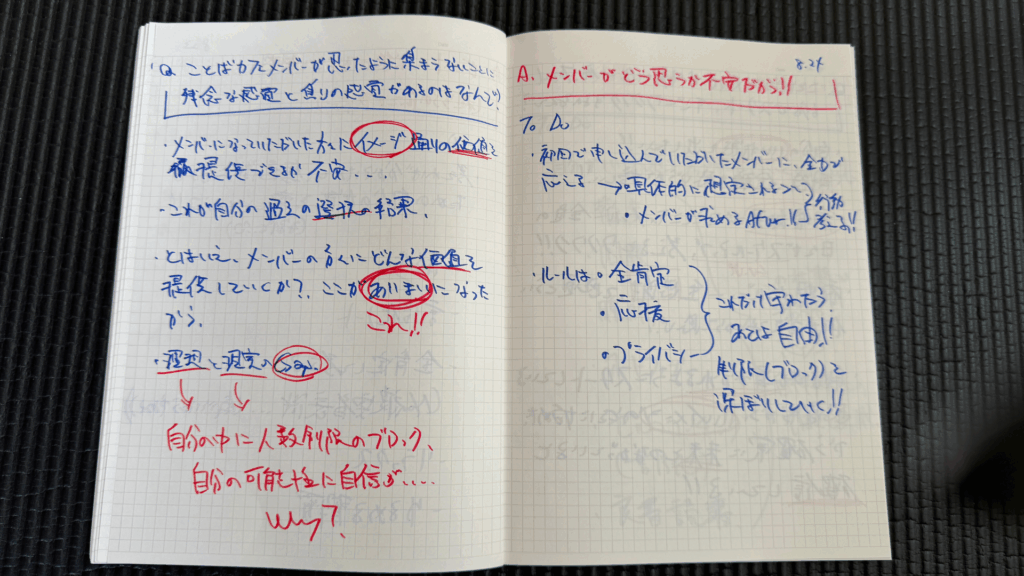 Q ことばカフェメンバーが思ったように集まらないことに
残念な感覚と焦りの感覚があるのはなんで?
・メンバーになっていただいた方々にイメージ通りの価値を
提供できるか不安....
・これが自分の過去の選択の結果、
・とはいえ、メンバーの方々にどんな価値を
提供していくか?、ここがあいまいになった
から、
これ!!
・理想と現実のGap.
自分の中に人数制限のブロック、
自分の可能性に自信が.....
Why?
8.24
A. メンバーがどう思うか不安だから!!
To Do
・初回で申し込んでいただいたメンバーに、全力で
応える →具体的に想定される
・メンバーが求めるAfter!!
行動
変える!!
・ルールは 全肯定
・応援
・プライバシー
これだけ守れたら
あとは自由!!
制限(ブロック)を
深ぼりしていく!!